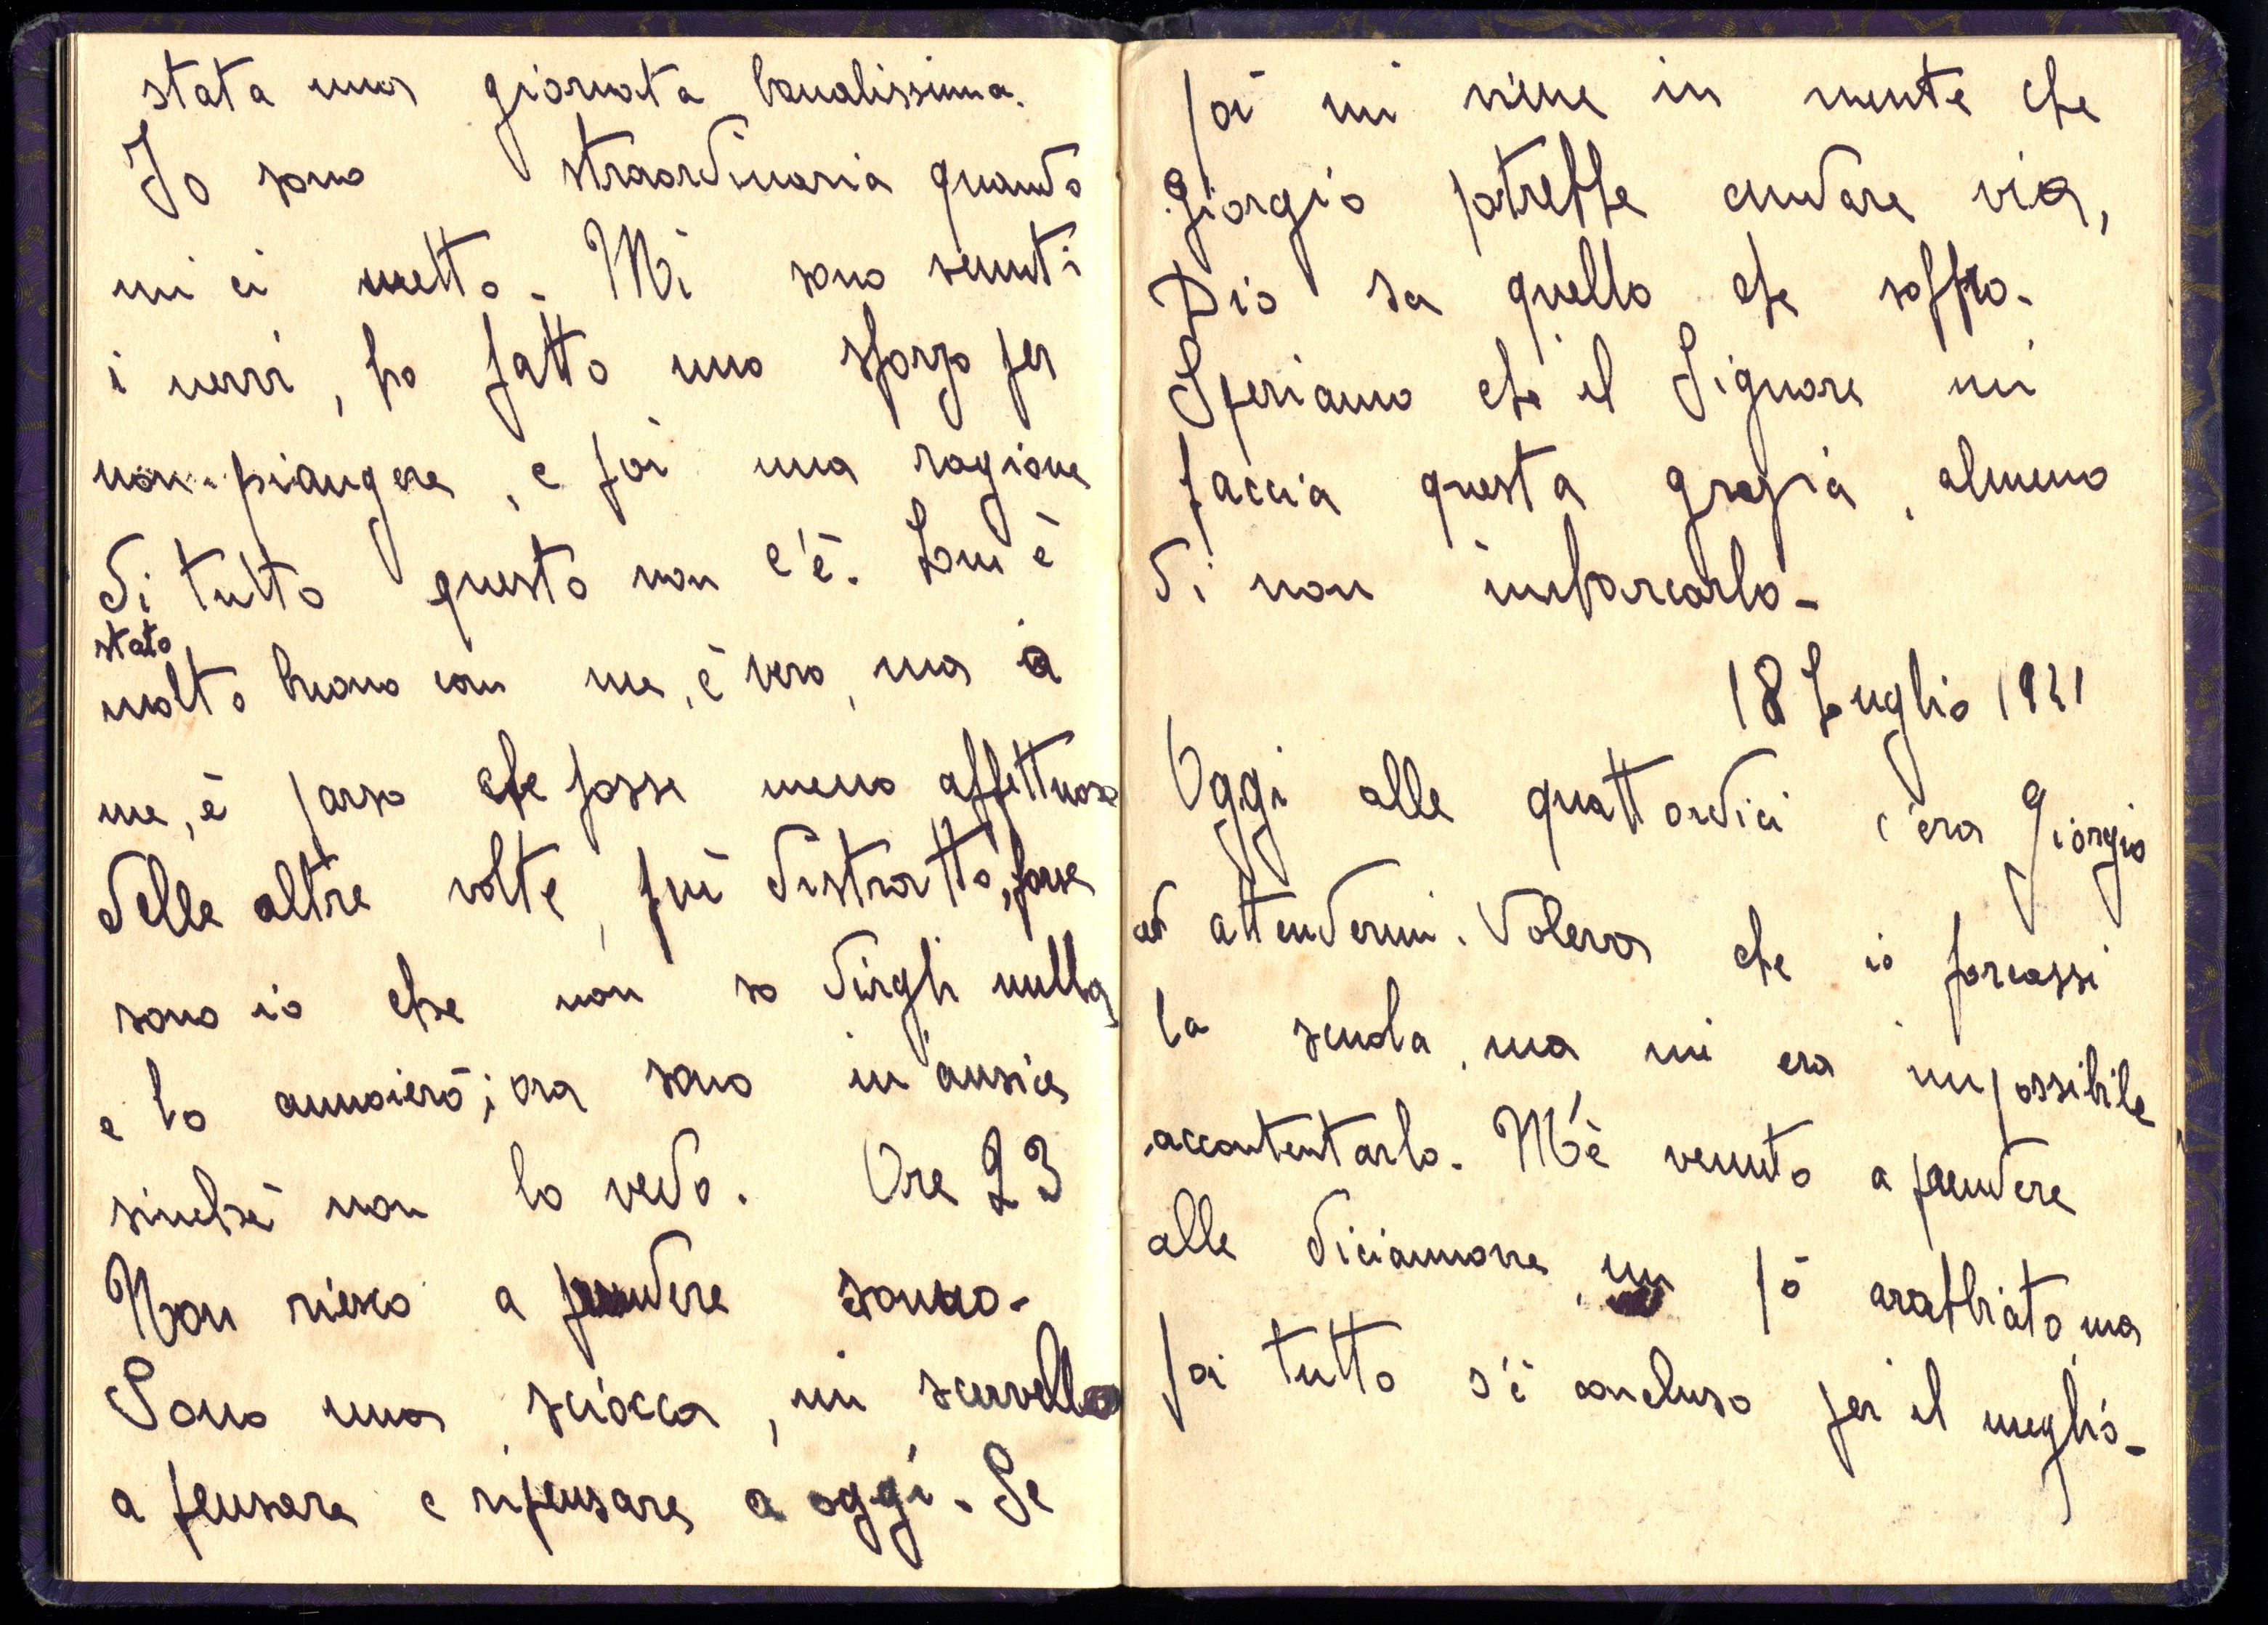 stata una giornata banalissima.
Io sono straordinaria quando
mi ci metto. Mi sono venuti
i nervi, ho fatto uno sforzo per
non piangere, e poi una ragione
di tutto questo non c'è. Lui è
stato
molto buono con me, è vero, ma a
me, è parso che fosse meno affettuoso
delle altre volte, più distratto, forse
sono io che non so dirgli nulla
e lo annoierò; ora sono in ansia
sinchè non lo vedo. Ore 23
Non riesco a prendere sonno.
Sono una sciocca, mi scervello
a pensare e ripensare a oggi. Se
poi mi viene in mente che
Giorgio potrebbe andare via,
Dio sa quello che soffro.
Speriamo che il Signore mi
faccia questa grazia, almeno
di non imbarcarlo-
18 Luglio 1941
Oggi alle quattordici c'era Giorgio
ad attendermi. Voleva che io forcassi
la scuola, ma mi era impossibile
accontentarlo. M'è venuto a prendere
alle diciannove, un pò arabbiato, ma
poi tutto s'è concluso per il meglio-